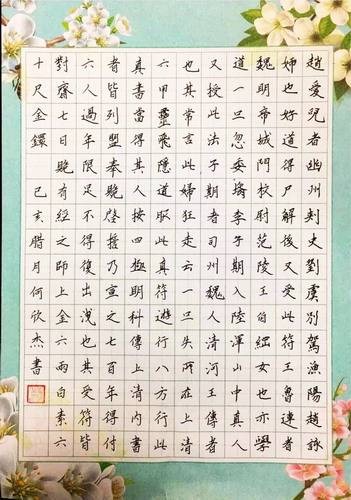 趙愛兒者幽州刾史劉虞別駕漁陽趙詠
姉也好道得尸解後又受此符王魯連者
魏明帝城門校尉范陵王伯綱女也亦學
道一旦忽委壻李子期入陸渾山中真人
又授此法子期者司州魏人清河王傳者
也其常言此婦狂走云一旦失所在上清
六甲靈飛隱道服此真符遊行八方行此
真書當得其人按四極明科傳上清內書
者皆列盟奉贐啓擔乃宣之七百年得付
六人過年限足不得復出洩也其受符皆
對齋七日贐有經之師上金六兩白素六
十尺金鐶 己亥臘月何欣杰書